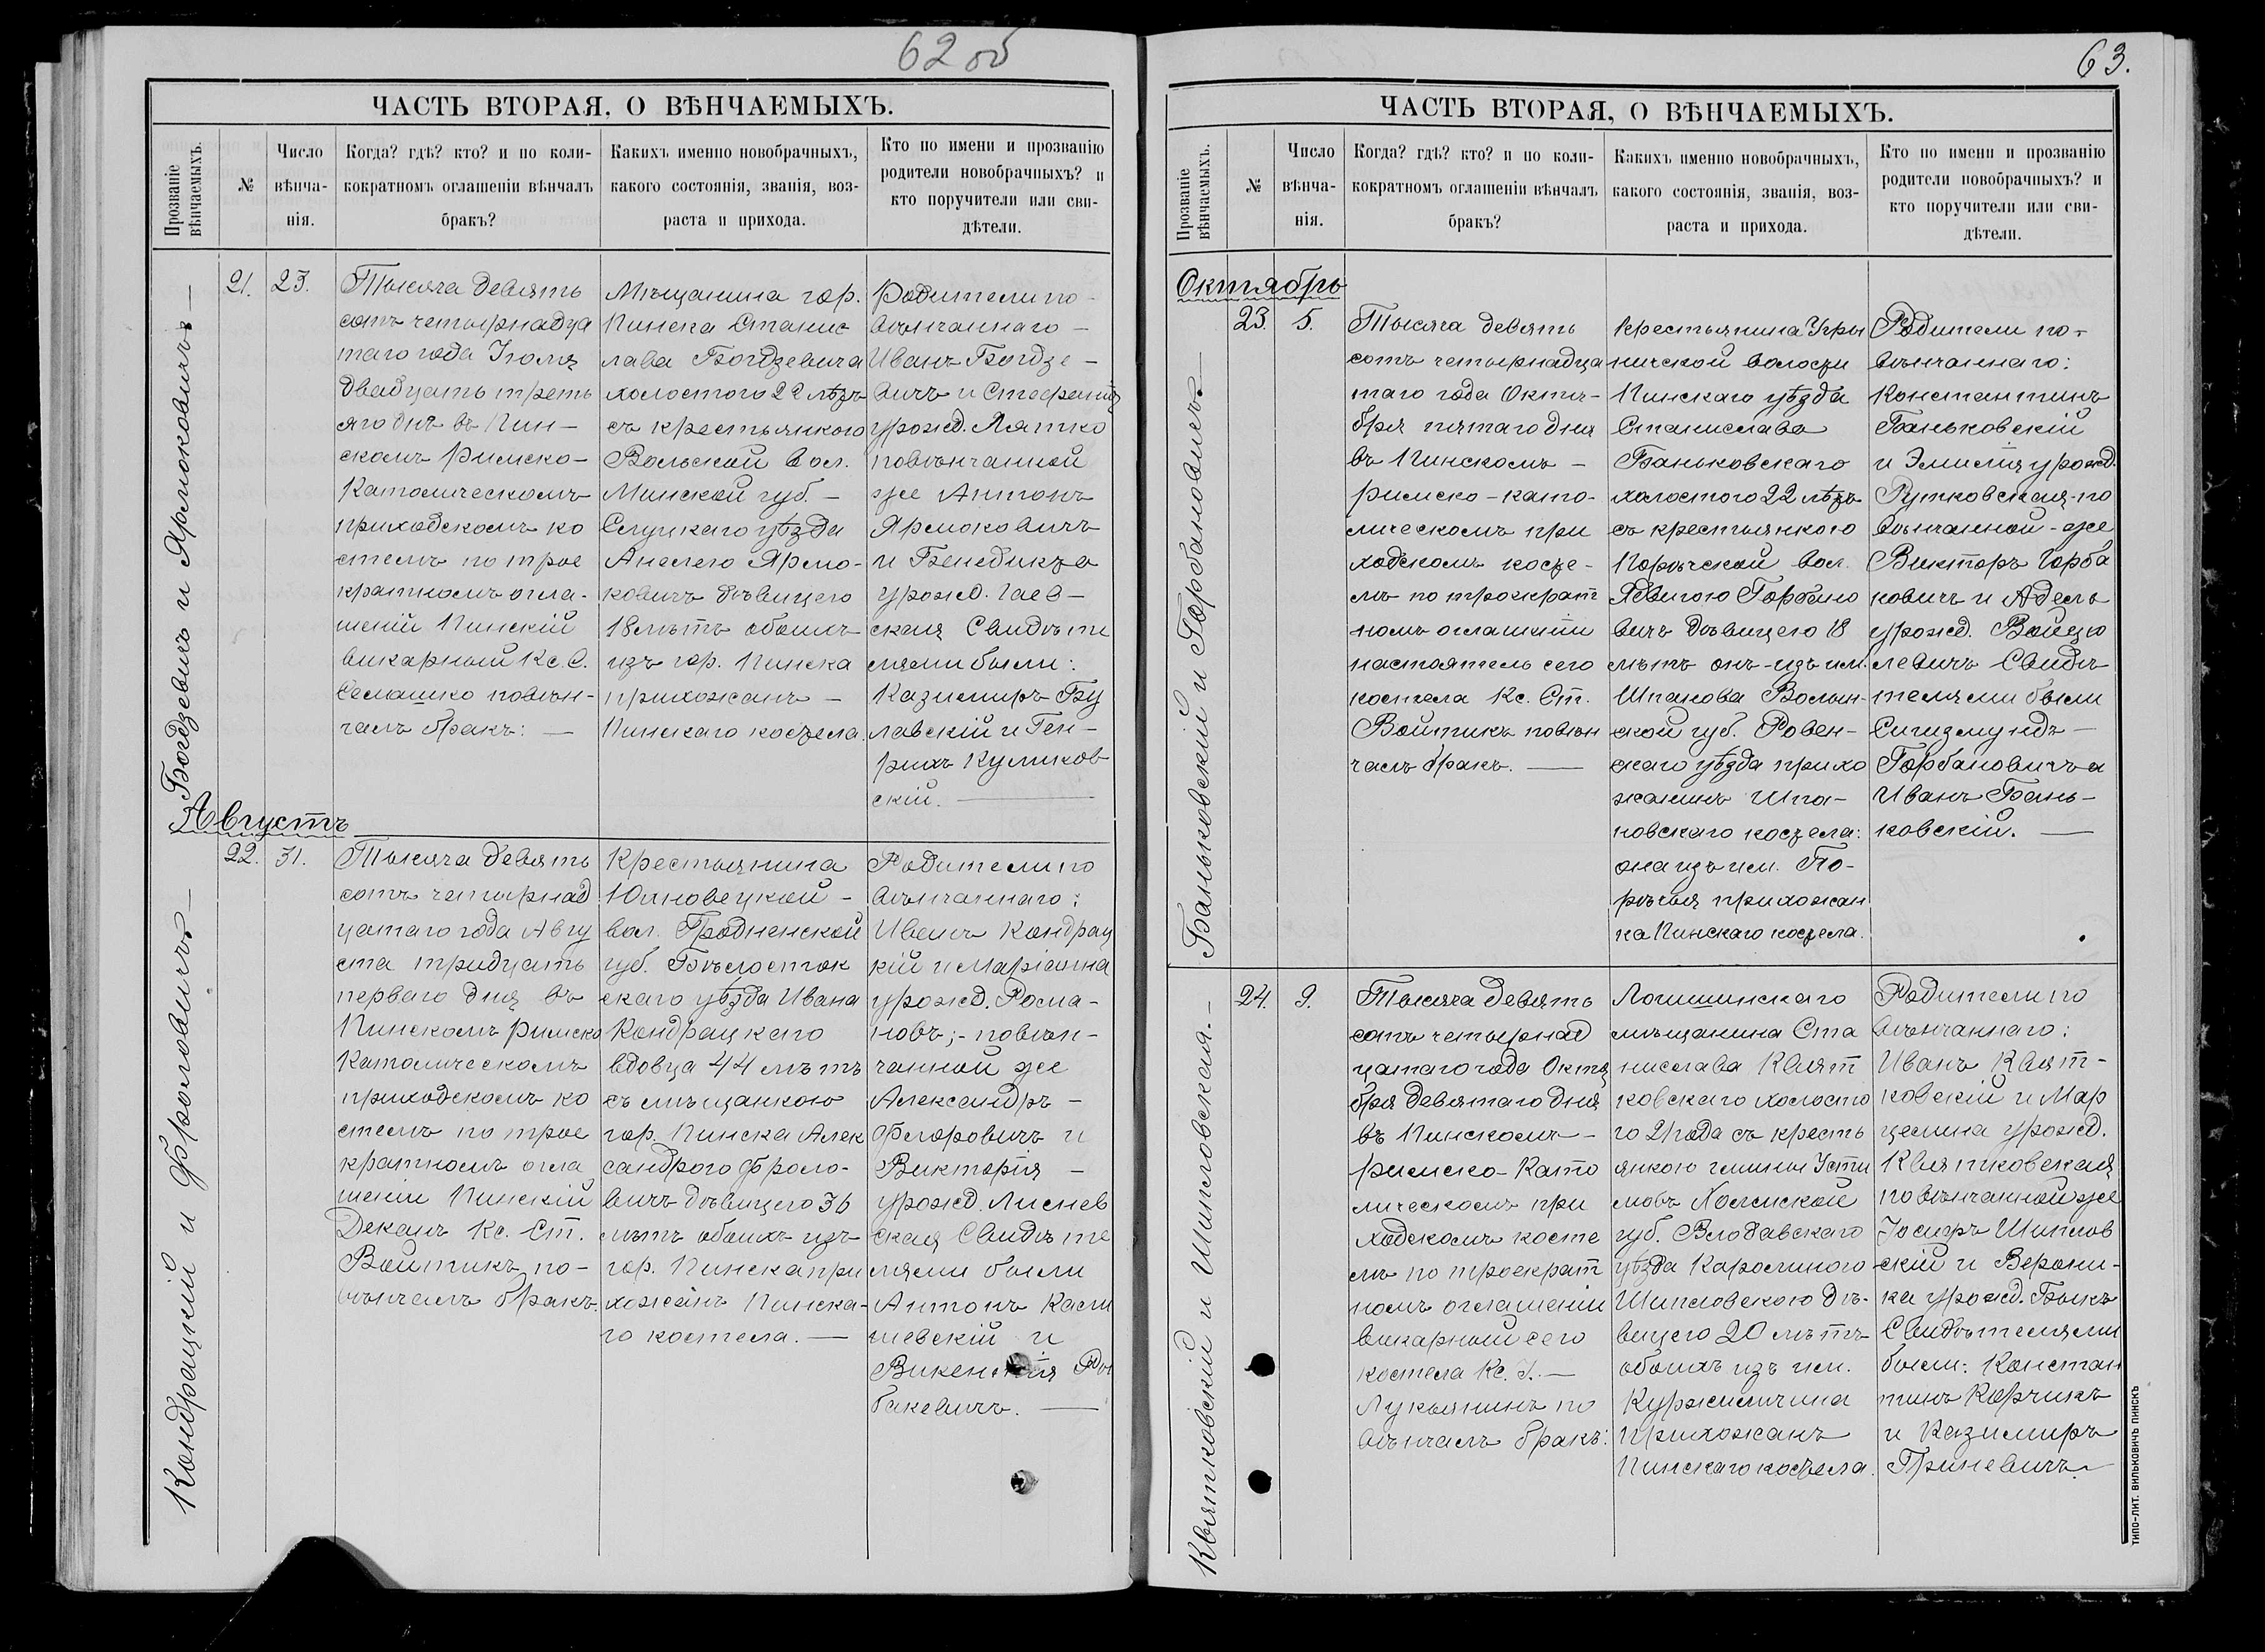 62 об
ЧАСТЬ ВТОРАЯ, О ВѢНЧАЕМЫХЪ.
Прозваніе
вѣнчаемыхъ.
№
Число
вѣнча-
нія.
Когда? гдѣ? кто? и по коли-
кократномъ оглашеніи вѣнчалъ
бракъ?
Какихъ именно новобрачныхъ,
какого состоянія, званія, воз-
раста и прихода.
Кто по имени и прозванію
родители новобрачныхъ? и
кто поручители или сви-
дѣтели.
Богдзевичъ и Ярмоковичъ —
21.
23.
Тысяча девять
сотъ четырнадца
таго года Іюля
двадцать треть
яго дня въ Пин-
скомъ Римско-
Католическомъ
приходскомъ ко
стелѣ по трое
кратномъ огла-
шеніи Пинскій
викарный Кс. С.
Семашко повѣн-
чалъ бракъ: —
Мѣщанина гор.
Пинска Станис
лава Богдзевича
холостого 22 лѣтъ
съ крестьянкою
Вольской вол.
Минской губ. —
Слуцкаго уѣзда
Анелею Ярмо-
ковичъ дѣвицею
18 лѣтъ обоихъ
изъ гор. Пинска
прихожанъ —
Пинскаго костела.
Родители по-
вѣнчаннаго —
Иванъ Богдзе-
вичъ и Стефанія
урожд. Лятко
повѣнчанной
же Антонъ
Ярмоковичъ
и Бенедикта
урожд. Гаев-
ская Свидѣте
лями были:
Казимиръ Бу
лавскій и Ген-
рихъ Куликов
скій. —
Августъ
Кондрацкій и Фроловичъ —
22.
31.
Тысяча девять
сотъ четырнад
цатаго года Авгу
ста тридцать
перваго дня въ
Пинскомъ Римско
Католическомъ
приходскомъ ко
стелѣ по трое
кратномъ огла
шеніи Пинскій
Деканъ Кс. Ст.
Войтикъ по-
вѣнчалъ бракъ.
Крестьянина
Юхновецкой —
вол. Гродненской
губ. Бѣлосток
скаго уѣзда Ивана
Кондрацкаго
вдовца 44 лѣтъ
съ мѣщанкою
гор. Пинска Алек
сандрою Фроло-
вичъ дѣвицею 36
лѣтъ обоихъ изъ
гор. Пинска при
хожанъ Пинска-
го костела. —
Родители по
вѣнчаннаго:
Иванъ Кондрац
кій и Маріанна
урожд. Рома-
новъ; - повѣн-
чанной же
Александръ —
Флоровичъ и
Викторія —
урожд. Лиснев
ская Свидѣте
лями были
Антонъ Касп
шевскій и
Викентій Ры
бакевичъ. —
63.
ЧАСТЬ ВТОРАЯ, О ВѢНЧАЕМЫХЪ.
Прозваніе
вѣнчаемыхъ.
№
Число
вѣнча-
нія.
Когда? гдѣ? кто? и по коли-
кократномъ оглашеніи вѣнчалъ
бракъ?
Какихъ именно новобрачныхъ,
какого состоянія, званія, воз-
раста и прихода.
Кто по имени и прозванію
родители новобрачныхъ? и
кто поручители или сви-
дѣтели.
Октябрь
Баньковскій и Горбановичъ —
23.
5.
Тысяча девять
сотъ четырнадца
таго года Октя-
бря пятаго дня
въ Пинскомъ —
римско-като-
лическомъ при
ходскомъ косте-
лѣ по троекрат
номъ оглашеніи
настоятель сего
костела Кс. Ст.
Войтикъ повѣн
чалъ бракъ. —
Крестьянина Угри
ничской волости
Пинскаго уѣзда
Станислава
Баньковскаго
холостого 22 лѣтъ
съ крестьянкою
Порѣчской вол.
Ядвигою Горбано
вичъ дѣвицею 18
лѣтъ онъ-изъ им.
Шпанова Волын-
ской губ. Ровен-
скаго уѣзда прихо
жанинъ Шпа-
новскаго костела:
она изъ им. По-
рѣчья прихожан
ка Пинскаго костела.
Родители по-
вѣнчаннаго:
Константинъ
Баньковскій
и Эмилія урожд.
Рутковская - по
вѣнчанной - же
Викторъ Горба
новичъ и Адель
урожд. Войцю
левичъ Свидѣ
телями были
Сигизмундъ —
Горбановичъ и
Иванъ Бань-
ковскій. —
Квятковскій и Шипловская. —
24.
9.
Тысяча девять
сотъ четырнад
цатаго года Октя
бря девятаго дня
въ Пинскомъ —
римско-като
лическомъ при
ходскомъ косте
лѣ по троекрат
номъ оглашеніи
викарный сего
костела Кс. І. —
Лукьянинъ по
вѣнчалъ бракъ:
Логишинскаго
мѣщанина Ста
нислава Квят
ковскаго холосто
го 21 года съ кресть
янкою гмины Усти
мовъ Холмской
губ. Влодавскаго
уѣзда Каролиною
Шипловскою дѣ-
вицею 20 лѣтъ
обоихъ изъ им.
Куржиличина
прихожанъ
Пинскаго костела.
Родители по
вѣнчаннаго:
Иванъ Квят-
ковскій и Мар
целина урожд.
Квятковская
повѣнчанной же
Іосифъ Шиплов
скій и Верони-
ка урожд. Быкъ
Свидѣтелями
были: Констан
тинъ Корчикъ
и Казимиръ
Гриневичъ.
ТИПО-ЛИТ. ВИЛЬКОВИЧЪ ПИНСКЪ